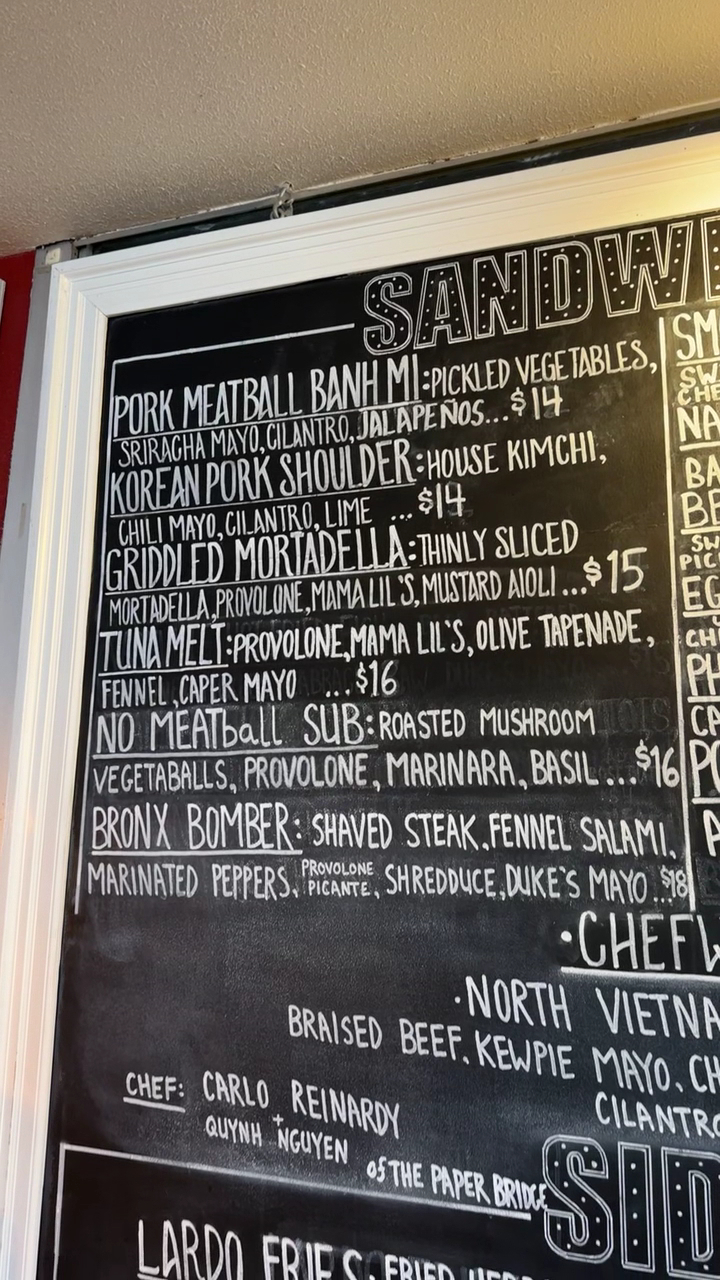 SANDWI
PORK MEATBALL BANH MI: PICKLED VEGETABLES,
SRIRACHA MAYO, CILANTRO, JALAPEÑOS...$14
KOREAN PORK SHOULDER: HOUSE KIMCHI,
CHILI MAYO, CILANTRO, LIME ...$14
GRIDDLED MORTADELLA: THINLY SLICED
MORTADELLA, PROVOLONE, MAMA LIL'S, MUSTARD AIOLI ...$15
TUNA MELT: PROVOLONE, MAMA LIL'S, OLIVE TAPENADE,
FENNEL, CAPER MAYO ...$16
NO MEATball SUB: ROASTED MUSHROOM
VEGETABALLS, PROVOLONE, MARINARA, BASIL...$16
BRONX BOMBER: SHAVED STEAK, FENNEL SALAMI,
MARINATED PEPPERS, PROVOLONE PICANTE, SHREDDUCE, DUKE'S MAYO ...$18
SM
SW
CHE
NA
BA
BE
SW
PIC
EG
CH
PH
CA
PO
A
·CHEF
·NORTH VIETNA
BRAISED BEEF, KEWPIE MAYO, CH
CILANTRO
CHEF: CARLO REINARDY
+
QUYNH NGUYEN
of THE PAPER BRIDGE
SID
LARDO FRIES: FRIED HER